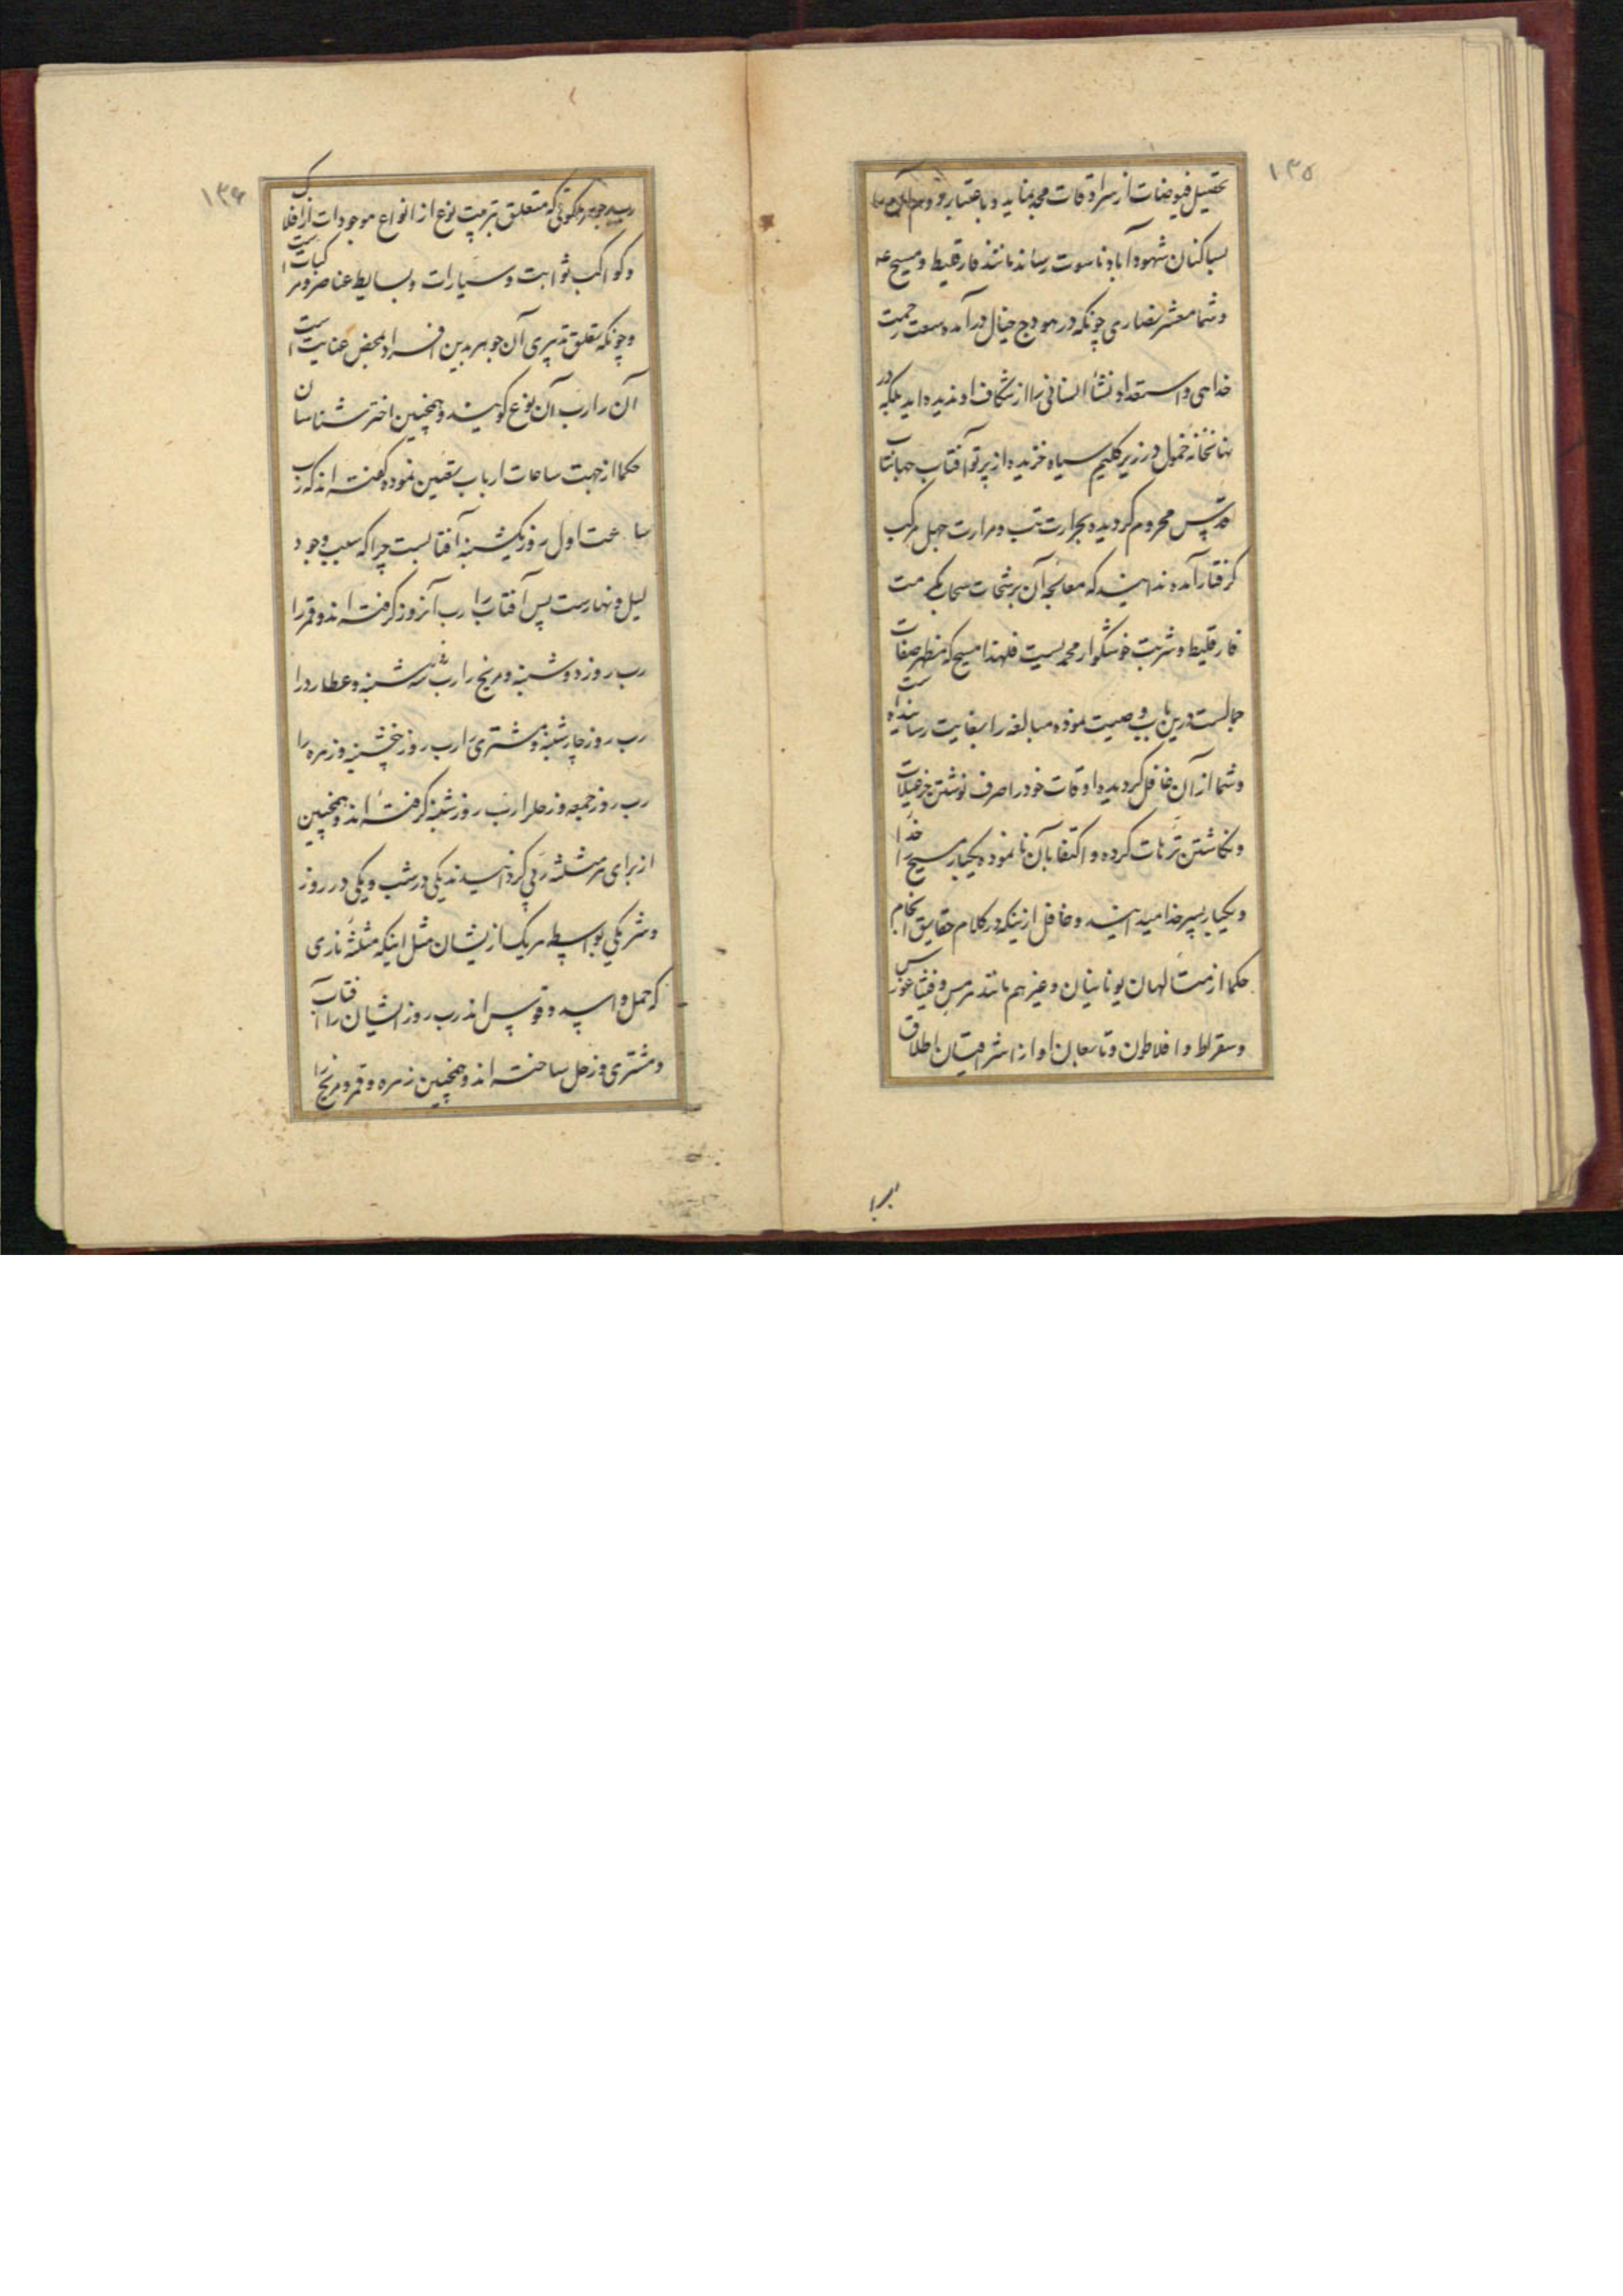 ۱۳۵
تحصیل فیوضات از سرادقات مجد نماید و باعتبار
بساکنان شهود آباد ناسوت رساند مانند فارقلیط و مسیح عه
و شما معشر نصاری چونکه در هودج خیال درآمده وسعت رحمت
خداهی و استعداد نشأ انسانی را از شکاف او ندیده اید بلکه در
نهانخانه خمول در زیر کلیم سیاه خزیده از پرتو آفتاب جهانتاب
تقدیس محروم کردیده بحرارت تب و مرارت جهل مرکب
کرفتار آمده ندانسید که معالجه آن برشحات سحاب مکرمت
فارقلیط و شربت خوشکوار محمدیست فلهذا مسیح که مظهر صفات
جمالست درین باب وصیت نموده مبالغه را بغایت رسانیده است
و شما از آن غافل کردیده اوقات خود را صرف نوشتن خزعبلات
و نکاشتن ترهات کرده و اکتفا بآن نا نموده یکبار مسیح را خدا
و یکبار پسر خدا میدانید و غافل ازینکه در کلام حقایق انجام
حکما از متألهان یونانیان و غیرهم مانند هرمس و فیثاغورس
و سقراط و افلاطون و تابعان او از اشراقیان اطلاق
ابرا
۱۳۶
رب بر جوهر ملکوتی که متعلق بتربیت نوع از انواع موجودات از افلاک
و کواکب ثوابت و سیارات و بسایط عناصر و مرکبات است
و چونکه تعلق تدبیری آن جوهر بدین افراد محض عنایت است
آن را رب آن نوع کویند و همچنین اختر شناسان
حکما از جهت ساعات ارباب تعیین نموده کفته اند که رب
ساعت اول روز یکشنبه آفتابست چرا که سبب وجود
لیل و نهارست پس آفتاب را رب آنروز کرفته اند و قمر را
رب روز دوشنبه و مریخ را رب سه شنبه و عطارد را
رب روز چارشنبه و مشتری را رب روز پنجشنبه و زهره را
رب روز جمعه و زحل را رب روز شنبه کرفته اند و همچنین
از برای هر مثلثه ربی کردانیدند یکی در شب و یکی در روز
و شریکی بواسطه هر یک ازیشان مثل اینکه مثلثه ناری
که حمل و اسد و قوس اند رب روز ایشان را آفتاب
و مشتری و زحل ساخته اند و همچنین زهره و قمر و مریخ را